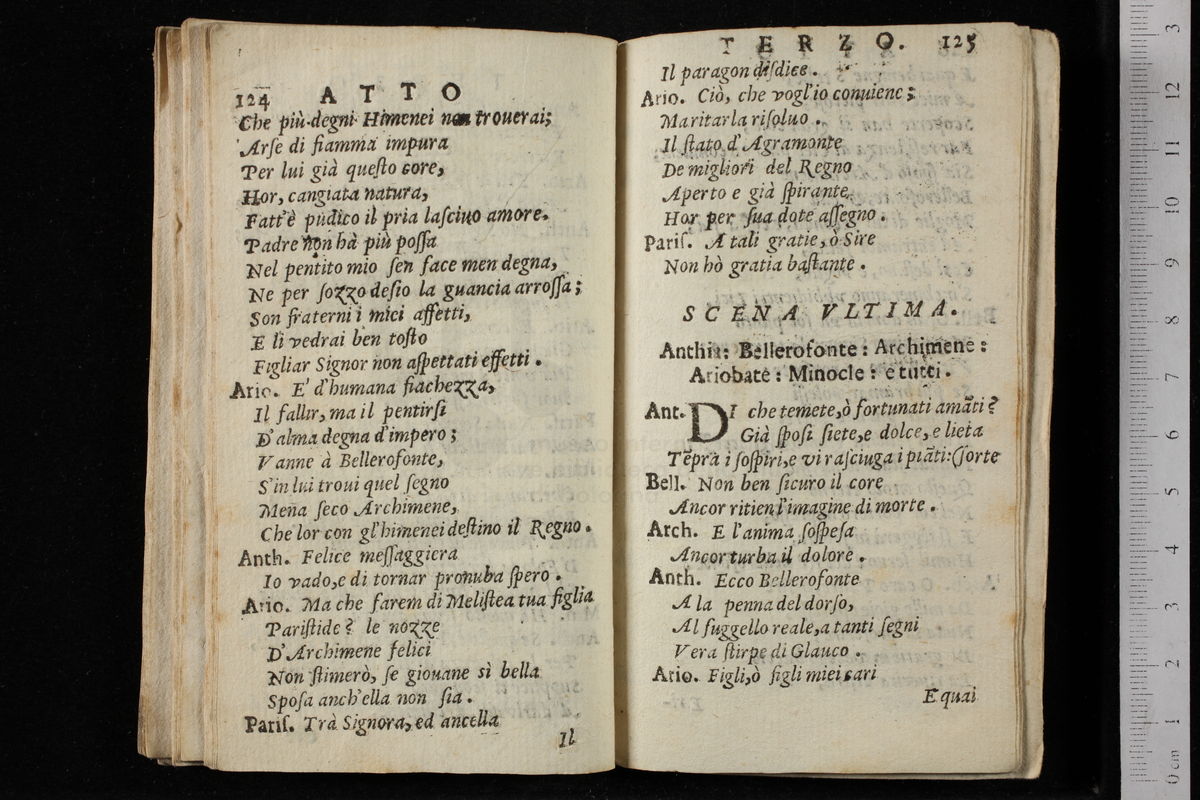 124 ATTO
Che più degni Himenei non trouerai;
Arse di fiamma impura
Per lui già queſto core,
Hor, cangiata natura,
Fatt'è pudico il pria laſciuo amore.
Padre non hà più poſſa
Nel pentito mio ſen face men degna,
Ne per ſozzo deſio la guancia arroſſa;
Son fraterni i miei affetti,
E li vedrai ben toſto
Figliar Signor non aſpettati effetti.
Ario. E' d'humana fiachezza,
Il fallir, ma il pentirſi
D'alma degna d'impero;
Vanne à Bellerofonte,
S'in lui troui quel ſegno
Mena ſeco Archimene,
Che lor con gl'himenei deſtino il Regno.
Anth. Felice meſſaggiera
Io vado, e di tornar pronuba ſpero.
Ario. Ma che farem di Meliſtea tua figlia
Pariſtide? le nozze
D'Archimene felici
Non ſtimerò, ſe giouane sì bella
Spoſa anch'ella non ſia.
Pariſ. Trà Signora, ed ancella
Il
TERZO. 125
Il paragon diſdice.
Ario. Ciò, che vogl'io conuiene;
Maritarla riſoluo.
Il ſtato d'Agramonte
De migliori del Regno
Aperto e già ſpirante
Hor per ſua dote aſſegno.
Pariſ. A tali gratie, ò Sire
Non hò gratia baſtante.
SCENA VLTIMA.
Anthia: Bellerofonte: Archimene:
Ariobate: Minocle: e tutti.
Ant. DI che temete, ò fortunati amāti?
Già ſpoſi ſiete, e dolce, e lieta
Tēpra i ſoſpiri, e vi raſciuga i piāti: (ſorte
Bell. Non ben ſicuro il core
Ancor ritien l'imagine di morte.
Arch. E l'anima ſoſpeſa
Ancor turba il dolore.
Anth. Ecco Bellerofonte
A la penna del dorſo,
Al ſuggello reale, a tanti ſegni
Vera ſtirpe di Glauco.
Ario. Figli, ò figli miei cari
E quai